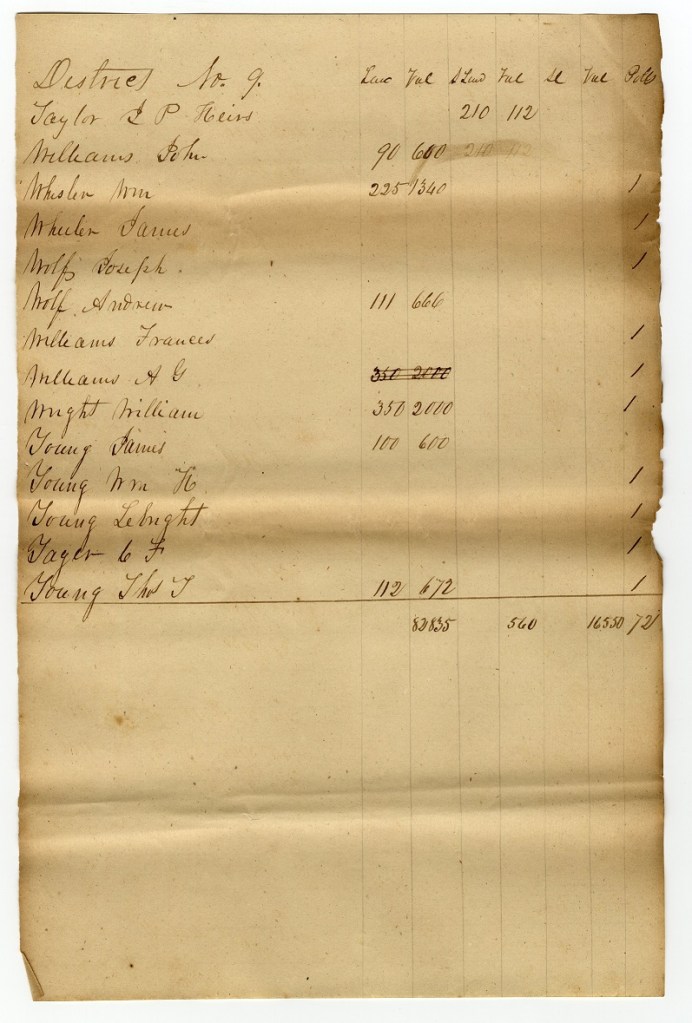 District No. 9. Lan Val S Land Val Sl Val Polls
Taylor L P Heirs 210 112
Williams John 90 600 210 112
Whisler Wm 225 1340 1
Wheeler James 1
Wolf Joseph. 1
Wolf Andrew 111 666
Williams Frances 1
Williams A G 350 2000 1
Wright William 350 2000 1
Young James 100 600
Young Wm H 1
Young Lebright 1
Yager C F 1
Young Thos T 112 672 1
82835 560 16550 72